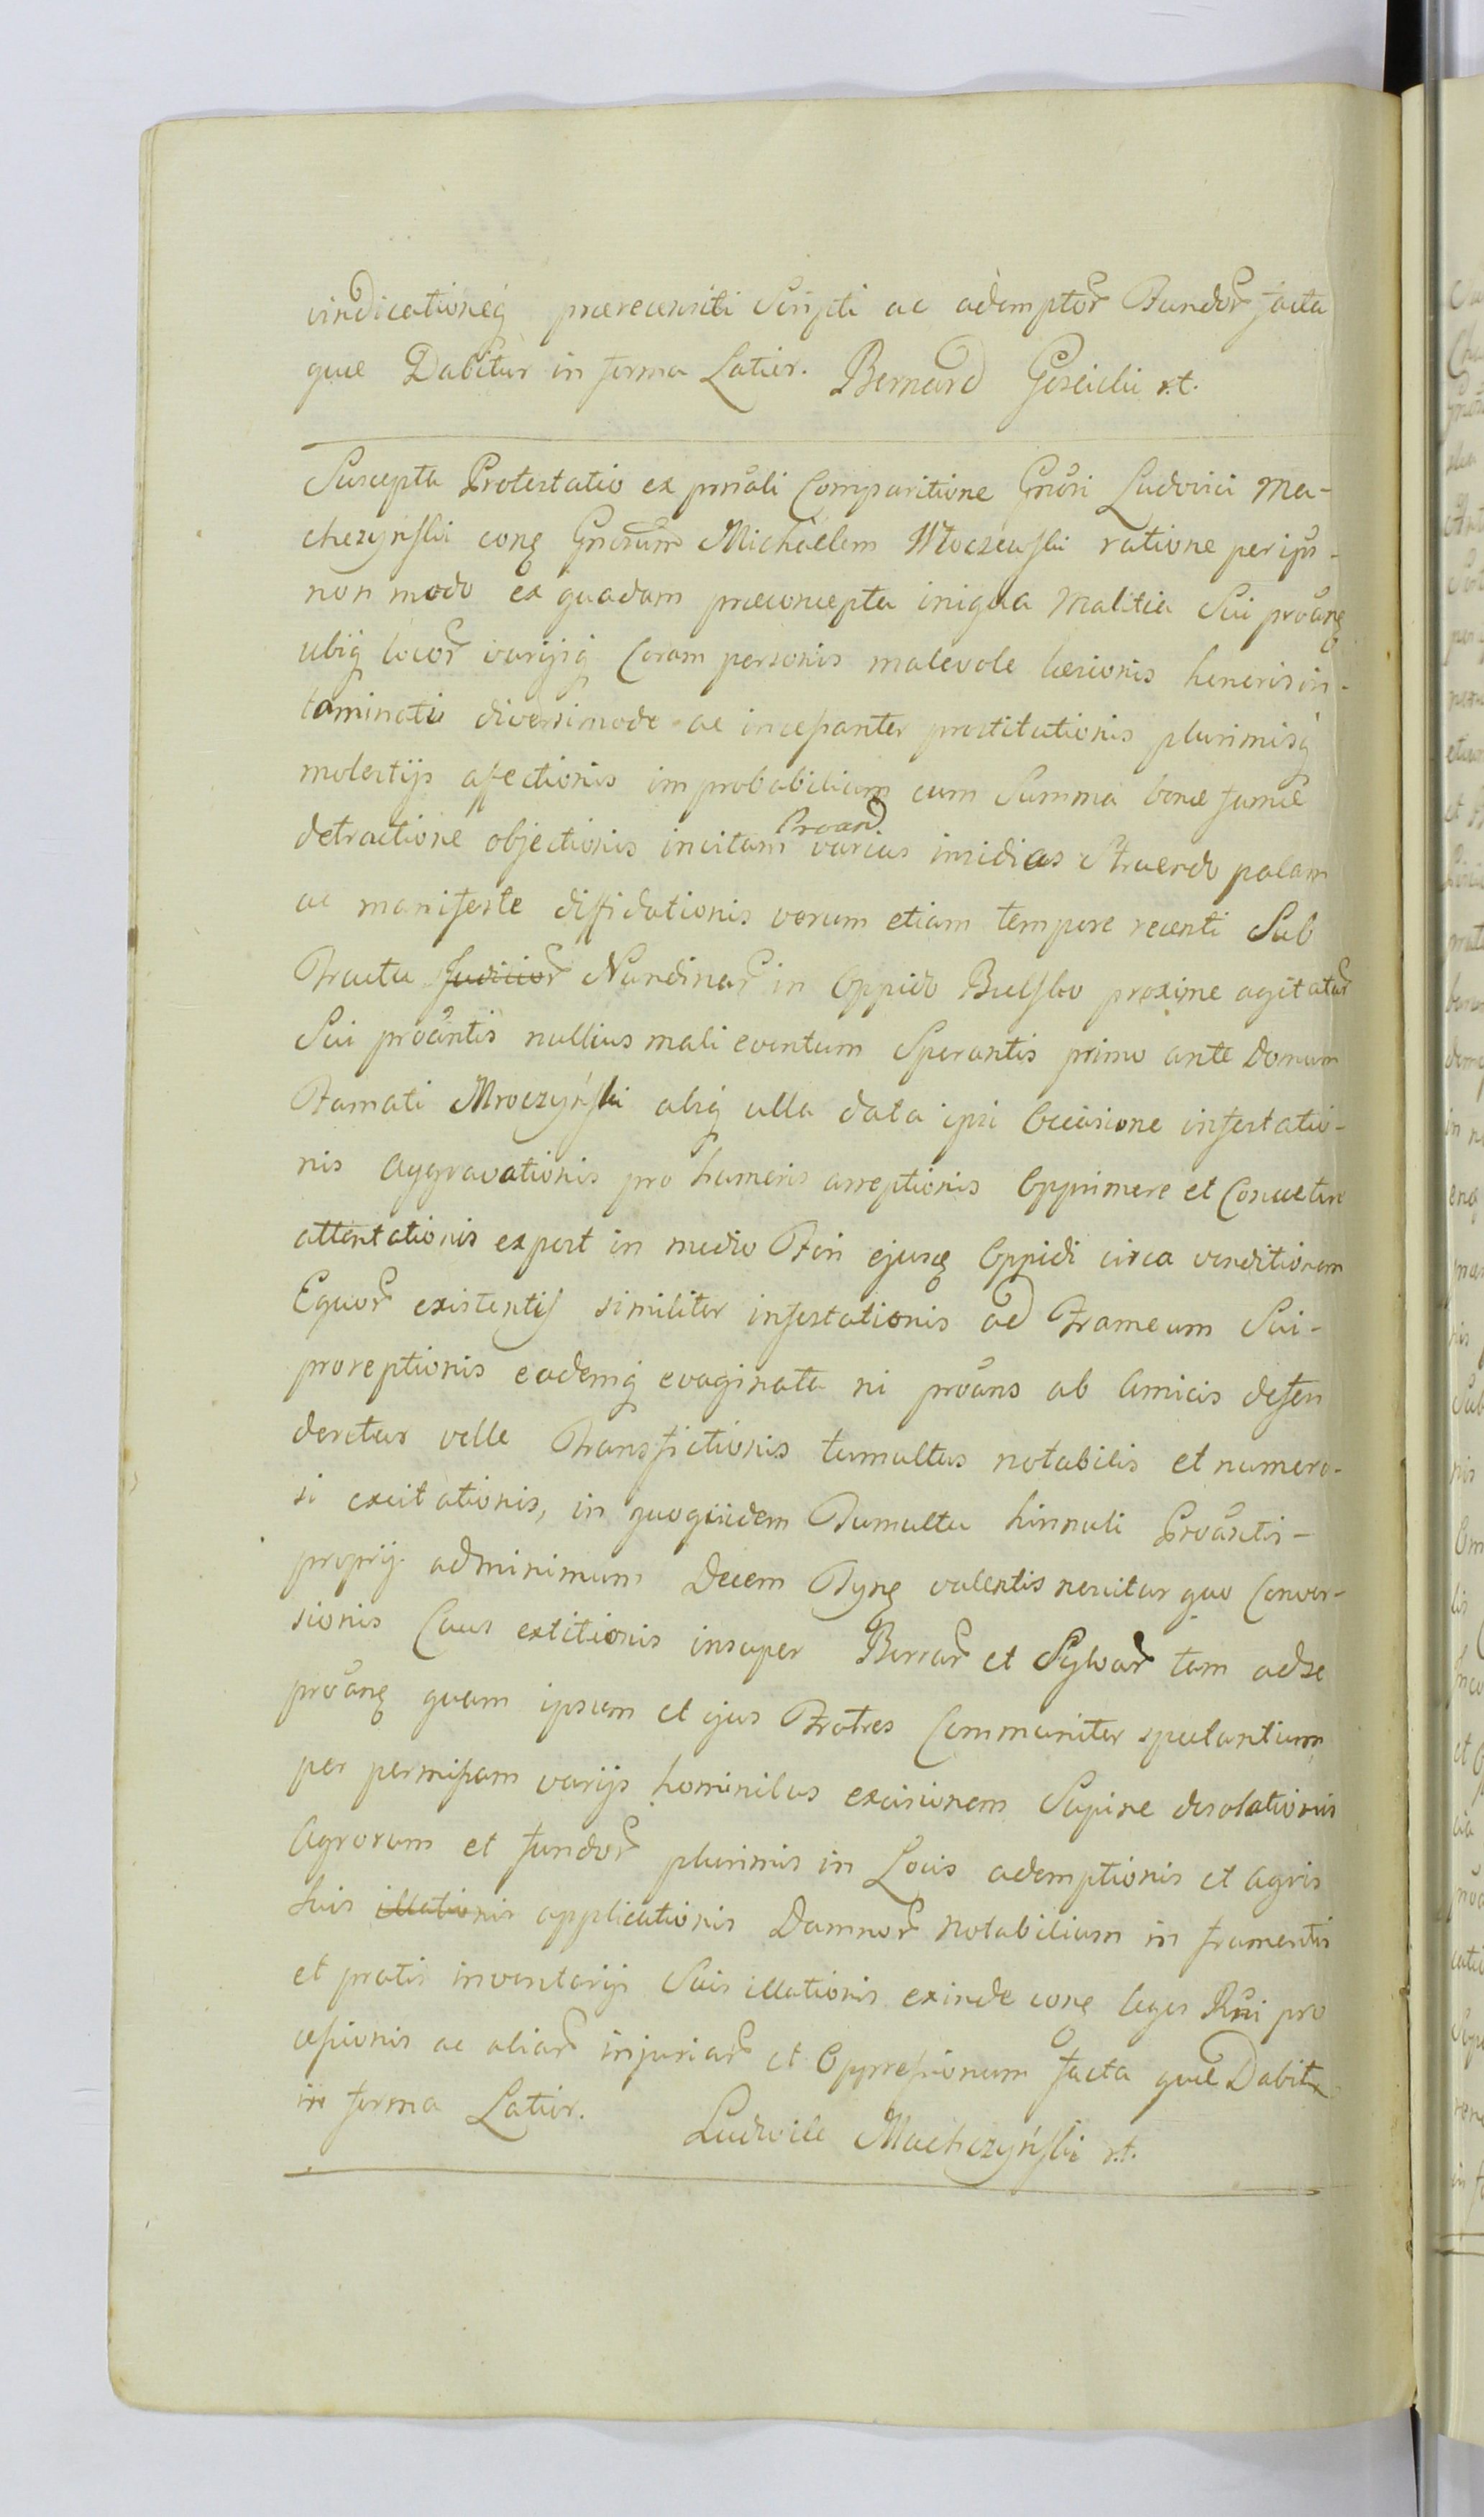 vindicationeq̃ prærecensiti Scripti ac ademptor̃ Fundor̃ facta
quæ Dabitur in forma Latior. Bernard Gosicki r.t.
Suscepta Protestatio ex prsnali Comparitione Gnosi Ludovici Ma-
chczynski conq̃ Gnosum Michaelem Włoczewski ratione per ips-
non modo ex quadam præconcepta iniqua Malitia Sui proãnq̃
ubiq̃ locor̃ varijsq̃ Coram personis malevole læsionis honoris in-
taminati diversimode ac incessanter prostitutionis plurimisq̃
molestijs affectionis improbabilium cum Summa bonæ famæ
detractione objectionis in vitam Proand varias insidias Struendo palam
ac manifeste diffidationis verum etiam tempore recenti Sub
Tractu Judicior̃ Nundinar̃ in Oppido Bielsko proxime agitatar̃
Sui proãntis nullius mali eventum Sperantis primo ante Domum
Famati Mroczyński absq̃ ulla data ipsi Occasione infestatio-
nis aggravationis pro humeris arreptionis Opprimere et Concutere
attentationis expost in medio Fori ejusq̃ Oppidi circa venditionem
Equor̃ existentis similiter infestationis ad Frameum Sui-
proreptionis eademq̃ evaginata ni proãns ab Amicis defen
deretur velle Transfictionis tumultus notabilis et numero-
si excitationis, in quoquidem Tumultu hinnuli Proãntis-
proprij adminimum Decem Tynq̃ valentis nescitur quo Conver-
sionis Caus extitionis insuper Borrar̃ et Sylvar̃ tam adse
proãnq̃ quam ipsum et ejus Fratres Communiter spectantium
per permissam varijs hominibus excisionem Supine desolationis
Agrorum et fundor̃ plurimis in Locis ademptionis et agris
Suis illationis applicationis Damnor̃ notabilium in frumentis
et pratis inventarijs Suis illationis exinde conq̃ leges Rni pro
cessionis ac aliar̃ injuriar̃ et Oppressionum facta quæ Dabitr
in forma Latior. Ludwik Machczyński r.t.